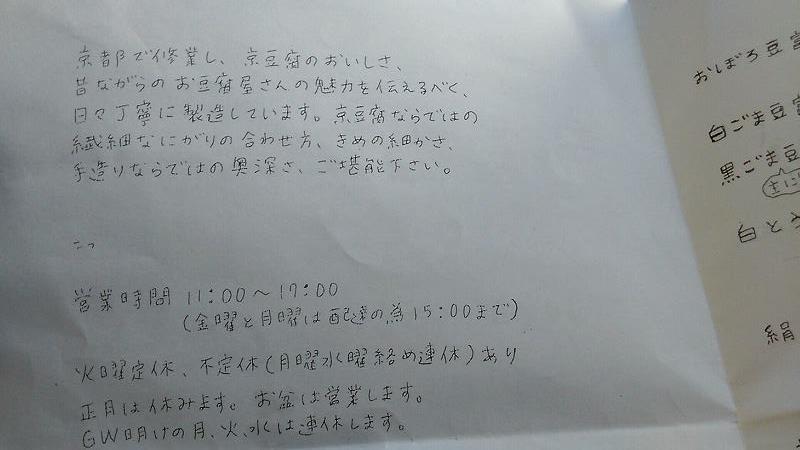 京都で修業し、京豆腐のおいしさ、
昔ながらのお豆腐屋さんの魅力を伝えるべく、
日々丁寧に製造しています。京豆腐ならではの
繊細なにがりの合わせ方、きめの細かさ、
手造りならではの奥深さ、ご堪能下さい。
こつ
営業時間 11:00〜17:00
(金曜と月曜は配達の為15:00まで)
火曜定休、不定休(月曜水曜絡め連休)あり
正月は休みます。お盆は営業します。
GW明けの月、火、水は連休します。
おぼろ豆
白ごま豆
黒ごま豆
白と
絹